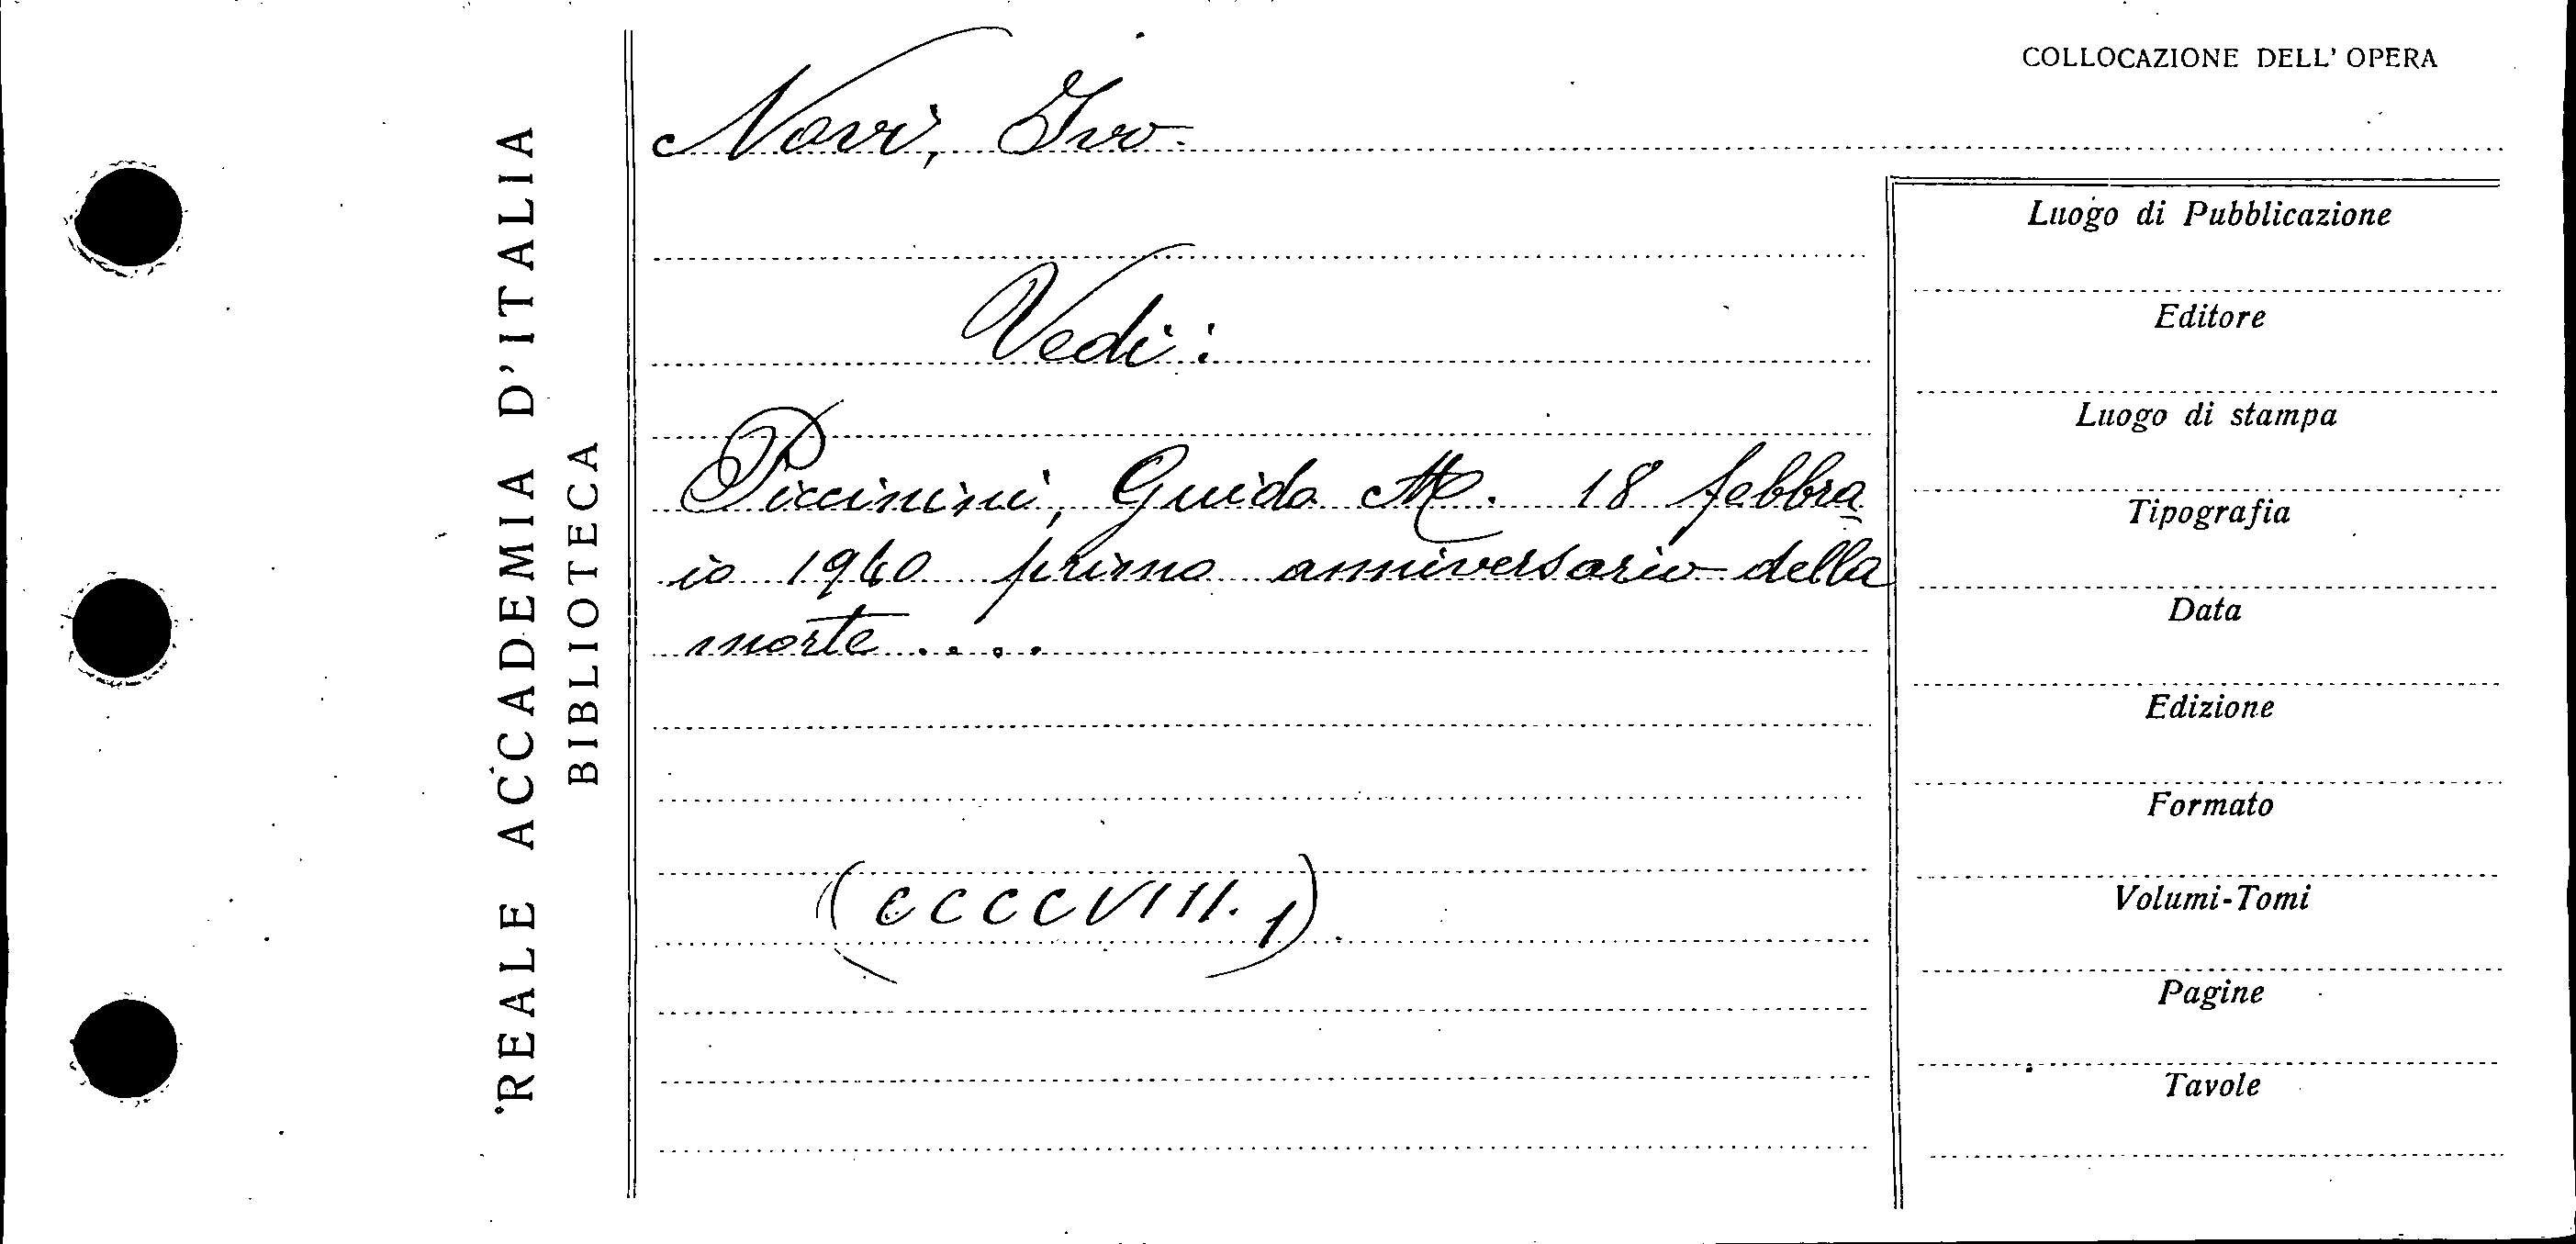 COLLOCAZIONE DELL' OPERA
Novi, Ivo.
REALE ACCADEMIA D'ITALIA
BIBLIOTECA
Vedi:
Piccinini, Guido M. 18 febbra
io 1940 primo anniversario della
morte....
(CCCCVIII.1)
Luogo di Pubblicazione
Editore
Luogo di stampa
Tipografia
Data
Edizione
Formato
Volumi-Tomi
Pagine
Tavole